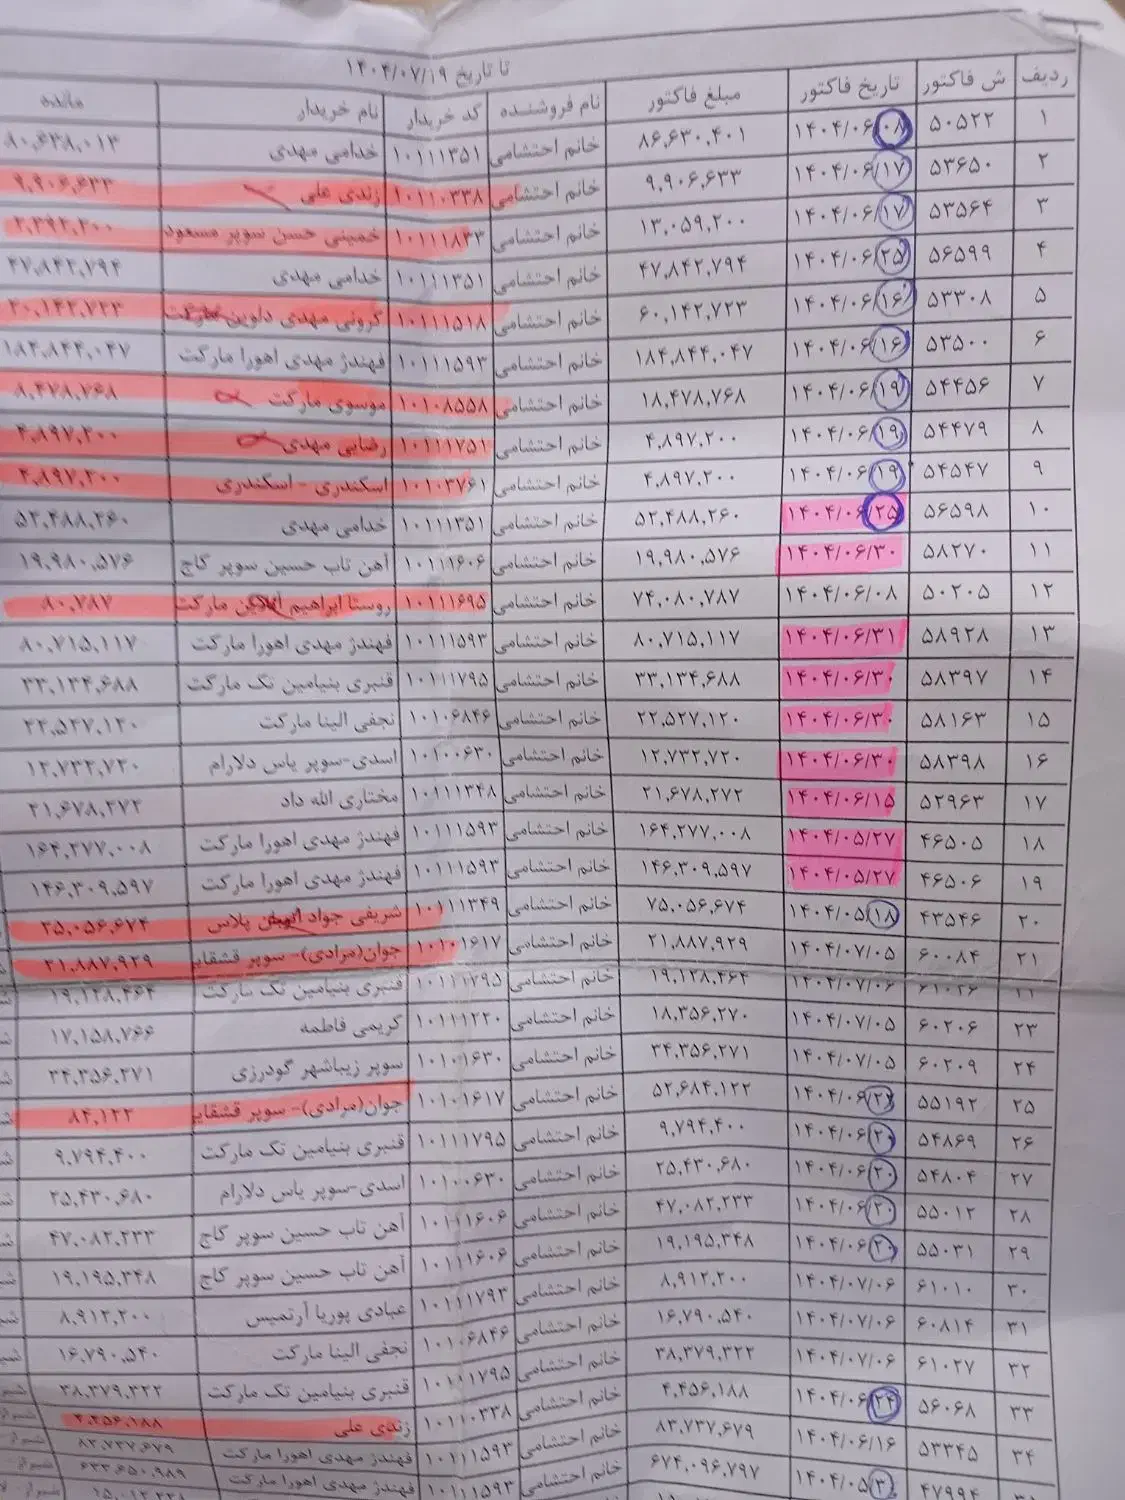 تا تاریخ ۱۴۰۴/۰۷/۱۹
ردیف ش فاکتور تاریخ فاکتور مبلغ فاکتور نام فروشنده کد خریدار نام خریدار مانده
۱ ۵۰۵۲۲ ۱۴۰۴/۰۶/۰۸ ۸۶,۶۳۰,۴۰۱ خانم احتشامی ۱۰۱۱۱۳۵۱ خدامی مهدی ۸۰,۶۳۸,۰۱۳
۲ ۵۳۶۵۰ ۱۴۰۴/۰۶/۱۷ ۹,۹۰۶,۶۳۳ خانم احتشامی ۱۰۱۱۰۳۳۸ زندی علی ۹,۹۰۶,۶۳۳
۳ ۵۳۵۶۴ ۱۴۰۴/۰۶/۱۷ ۱۳,۰۵۹,۲۰۰ خانم احتشامی ۱۰۱۱۱۸۳۳ خمینی حسن سوپر مسعود
۴ ۵۶۵۹۹ ۱۴۰۴/۰۶/۲۵ ۴۷,۸۴۲,۷۹۴ خانم احتشامی ۱۰۱۱۱۳۵۱ خدامی مهدی ۴۷,۸۴۲,۷۹۴
۵ ۵۳۳۰۸ ۱۴۰۴/۰۶/۱۶ ۶۰,۱۴۲,۷۲۳ خانم احتشامی ۱۰۱۱۱۵۱۸ گرونی مهدی دلوین مارکت ۲۰,۱۴۲,۷۲۳
۶ ۵۳۵۰۰ ۱۴۰۴/۰۶/۱۶ ۱۸۴,۸۴۴,۰۴۷ خانم احتشامی ۱۰۱۱۱۵۹۳ فهندژ مهدی اهورا مارکت ۱۸۴,۸۴۴,۰۴۷
۷ ۵۴۴۵۶ ۱۴۰۴/۰۶/۱۹ ۱۸,۴۷۸,۷۶۸ خانم احتشامی ۱۰۱۰۸۵۵۸ موسوی مارکت ۸,۴۷۸,۷۶۸
۸ ۵۴۴۷۹ ۱۴۰۴/۰۶/۱۹ ۴,۸۹۷,۲۰۰ خانم احتشامی ۱۰۱۱۱۷۵۱ رضایی مهدی ۴,۸۹۷,۲۰۰
۹ ۵۴۵۴۷ ۱۴۰۴/۰۶/۱۹ ۴,۸۹۷,۲۰۰ خانم احتشامی ۱۰۱۰۳۷۶۱ اسکندری - اسکندری ۴,۸۹۷,۲۰۰
۱۰ ۵۶۵۹۸ ۱۴۰۴/۰۶/۲۵ ۵۲,۴۸۸,۲۶۰ خانم احتشامی ۱۰۱۱۱۳۵۱ خدامی مهدی ۵۲,۴۸۸,۲۶۰
۱۱ ۵۸۲۷۰ ۱۴۰۴/۰۶/۳۰ ۱۹,۹۸۰,۵۷۶ خانم احتشامی ۱۰۱۱۱۶۰۶ آهن تاب حسین سوپر کاج ۱۹,۹۸۰,۵۷۶
۱۲ ۵۰۲۰۵ ۱۴۰۴/۰۶/۰۸ ۷۴,۰۸۰,۷۸۷ خانم احتشامی ۱۰۱۱۱۶۹۵ روستا ابراهیم مارکت ۸۰,۷۸۷
۱۳ ۵۸۹۲۸ ۱۴۰۴/۰۶/۳۱ ۸۰,۷۱۵,۱۱۷ خانم احتشامی ۱۰۱۱۱۵۹۳ فهندژ مهدی اهورا مارکت ۸۰,۷۱۵,۱۱۷
۱۴ ۵۸۳۹۷ ۱۴۰۴/۰۶/۳۰ ۳۳,۱۳۴,۶۸۸ خانم احتشامی ۱۰۱۱۱۷۹۵ قنبری بنیامین تک مارکت ۳۳,۱۳۴,۶۸۸
۱۵ ۵۸۱۶۳ ۱۴۰۴/۰۶/۳۰ ۲۲,۵۲۷,۱۲۰ خانم احتشامی ۱۰۱۰۶۸۴۶ نجفی الینا مارکت ۲۲,۵۲۷,۱۲۰
۱۶ ۵۸۳۹۸ ۱۴۰۴/۰۶/۳۰ ۱۲,۷۳۲,۷۲۰ خانم احتشامی ۱۰۱۰۰۶۳۰ اسدی-سوپر یاس دلارام ۱۲,۷۳۲,۷۲۰
۱۷ ۵۲۹۶۳ ۱۴۰۴/۰۶/۱۵ ۲۱,۶۷۸,۲۷۲ خانم احتشامی ۱۰۱۱۱۳۴۸ مختاری الله داد ۲۱,۶۷۸,۲۷۲
۱۸ ۴۶۵۰۵ ۱۴۰۴/۰۵/۲۷ ۱۶۴,۲۷۷,۰۰۸ خانم احتشامی ۱۰۱۱۱۵۹۳ فهندژ مهدی اهورا مارکت ۱۶۴,۲۷۷,۰۰۸
۱۹ ۴۶۵۰۶ ۱۴۰۴/۰۵/۲۷ ۱۴۶,۳۰۹,۵۹۷ خانم احتشامی ۱۰۱۱۱۵۹۳ فهندژ مهدی اهورا مارکت ۱۴۶,۳۰۹,۵۹۷
۲۰ ۴۳۵۴۶ ۱۴۰۴/۰۵/۱۸ ۷۵,۰۵۶,۶۷۴ خانم احتشامی ۱۰۱۱۱۳۴۹ شریفی جواد پلاس ۲۵,۰۵۶,۶۷۴
۲۱ ۶۰۰۸۴ ۱۴۰۴/۰۷/۰۵ ۲۱,۸۸۷,۹۲۹ خانم احتشامی ۱۰۱۰۱۶۱۷ جوان(مرادی)- سوپر قشقایی ۲۱,۸۸۷,۹۲۹
۱۹,۱۲۸,۴۶۴ خانم احتشامی ۱۰۱۱۱۷۹۵ قنبری بنیامین تک مارکت ۱۹,۱۲۸,۴۶۴
۲۳ ۶۰۲۰۶ ۱۴۰۴/۰۷/۰۵ ۱۸,۳۵۶,۲۷۰ خانم احتشامی ۱۰۱۱۱۲۲۰ کریمی فاطمه ۱۷,۱۵۸,۷۶۶
۲۴ ۶۰۲۰۹ ۱۴۰۴/۰۷/۰۵ ۳۴,۳۵۶,۲۷۱ خانم احتشامی ۱۰۱۰۱۶۳۰ سوپر زیباشهر گودرزی ۳۴,۳۵۶,۲۷۱
۲۵ ۵۵۱۹۲ ۱۴۰۴/۰۶/۲۲ ۵۲,۶۸۴,۱۲۲ خانم احتشامی ۱۰۱۰۱۶۱۷ جوان(مرادی)- سوپر قشقایی ۸۴,۱۲۲
۲۶ ۵۴۸۶۹ ۱۴۰۴/۰۶/۲۰ ۹,۷۹۴,۴۰۰ خانم احتشامی ۱۰۱۱۱۷۹۵ قنبری بنیامین تک مارکت ۹,۷۹۴,۴۰۰
۲۷ ۵۴۸۰۴ ۱۴۰۴/۰۶/۲۰ ۲۵,۴۳۰,۶۸۰ خانم احتشامی ۱۰۱۰۰۶۳۰ اسدی-سوپر یاس دلارام ۲۵,۴۳۰,۶۸۰
۲۸ ۵۵۰۱۲ ۱۴۰۴/۰۶/۲۰ ۴۷,۰۸۲,۲۳۳ خانم احتشامی ۱۰۱۱۱۶۰۶ آهن تاب حسین سوپر کاج ۴۷,۰۸۲,۲۳۳
۲۹ ۵۵۰۳۱ ۱۴۰۴/۰۶/۲۰ ۱۹,۱۹۵,۳۴۸ خانم احتشامی ۱۰۱۱۱۶۰۶ آهن تاب حسین سوپر کاج ۱۹,۱۹۵,۳۴۸
۳۰ ۶۱۰۱۰ ۱۴۰۴/۰۷/۰۶ ۸,۹۱۲,۲۰۰ خانم احتشامی ۱۰۱۱۱۷۹۳ عبادی پوریا آرتمیس ۸,۹۱۲,۲۰۰
۳۱ ۶۰۸۱۴ ۱۴۰۴/۰۷/۰۶ ۱۶,۷۹۰,۵۴۰ خانم احتشامی ۱۰۱۰۶۸۴۶ نجفی الینا مارکت ۱۶,۷۹۰,۵۴۰
۳۲ ۶۱۰۲۷ ۱۴۰۴/۰۷/۰۶ ۳۸,۳۷۹,۳۲۲ خانم احتشامی ۱۰۱۱۱۷۹۵ قنبری بنیامین تک مارکت ۳۸,۳۷۹,۳۲۲
۳۳ ۵۶۰۶۸ ۱۴۰۴/۰۶/۲۴ ۴,۴۵۶,۱۸۸ خانم احتشامی ۱۰۱۱۰۳۳۸ زندی علی ۴,۴۵۶,۱۸۸
۳۴ ۵۳۳۴۵ ۱۴۰۴/۰۶/۱۶ ۸۳,۷۳۷,۶۷۹ خانم احتشامی ۱۰۱۱۱۵۹۳ فهندژ مهدی اهورا مارکت ۸۳,۷۳۷,۶۷۹
۴۷۹۹۴ ۶۷۴,۰۹۶,۷۹۷ خانم احتشامی ۱۰۱۱۱۵۹۳ فهندژ مهدی اهورا مارکت ۶۳۳,۶۵۰,۹۸۹